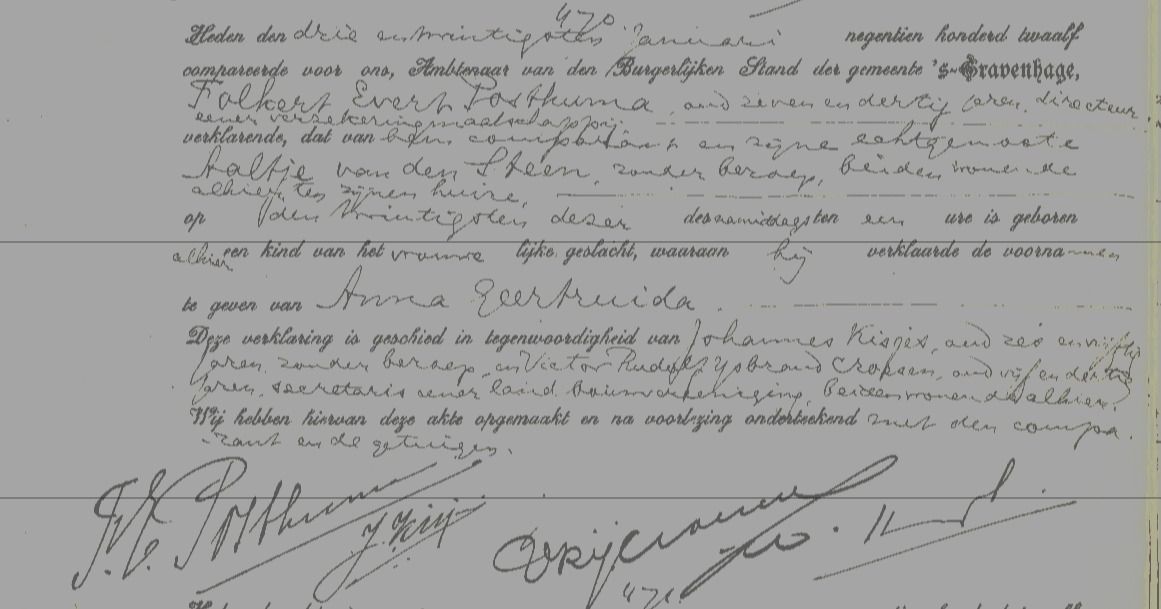 470
Heden den drie en twintigsten Januari negentien honderd twaalf
compareerde voor ons, Ambtenaar van den Burgerlijken Stand der gemeente 's-Gravenhage,
Folkert Evert Posthuma, oud zeven en dertig jaren, directeur
eener verzekeringmaatschappij,
verklarende, dat van hem comparant en zijne echtgenoote
Aaltje van den Steen, zonder beroep, beiden wonende
alhier, ten zijnen huize,
op den twintigsten dezer des namiddags ten een ure is geboren
alhier een kind van het vrouwelijke geslacht, waaraan hij verklaarde de voornamen
te geven van Anna Geertruida.
Deze verklaring is geschied in tegenwoordigheid van Johannes Kisjes, oud zes en vijftig
jaren, zonder beroep, en Victor Rudolf IJsbrand Croesen, oud vijf en dertig
jaren, secretaris eener landbouwvereeniging, beiden wonende alhier.
Wij hebben hiervan deze akte opgemaakt en na voorlezing onderteekend met den compa-
rant en de getuigen.
F.E. Posthuma
471.